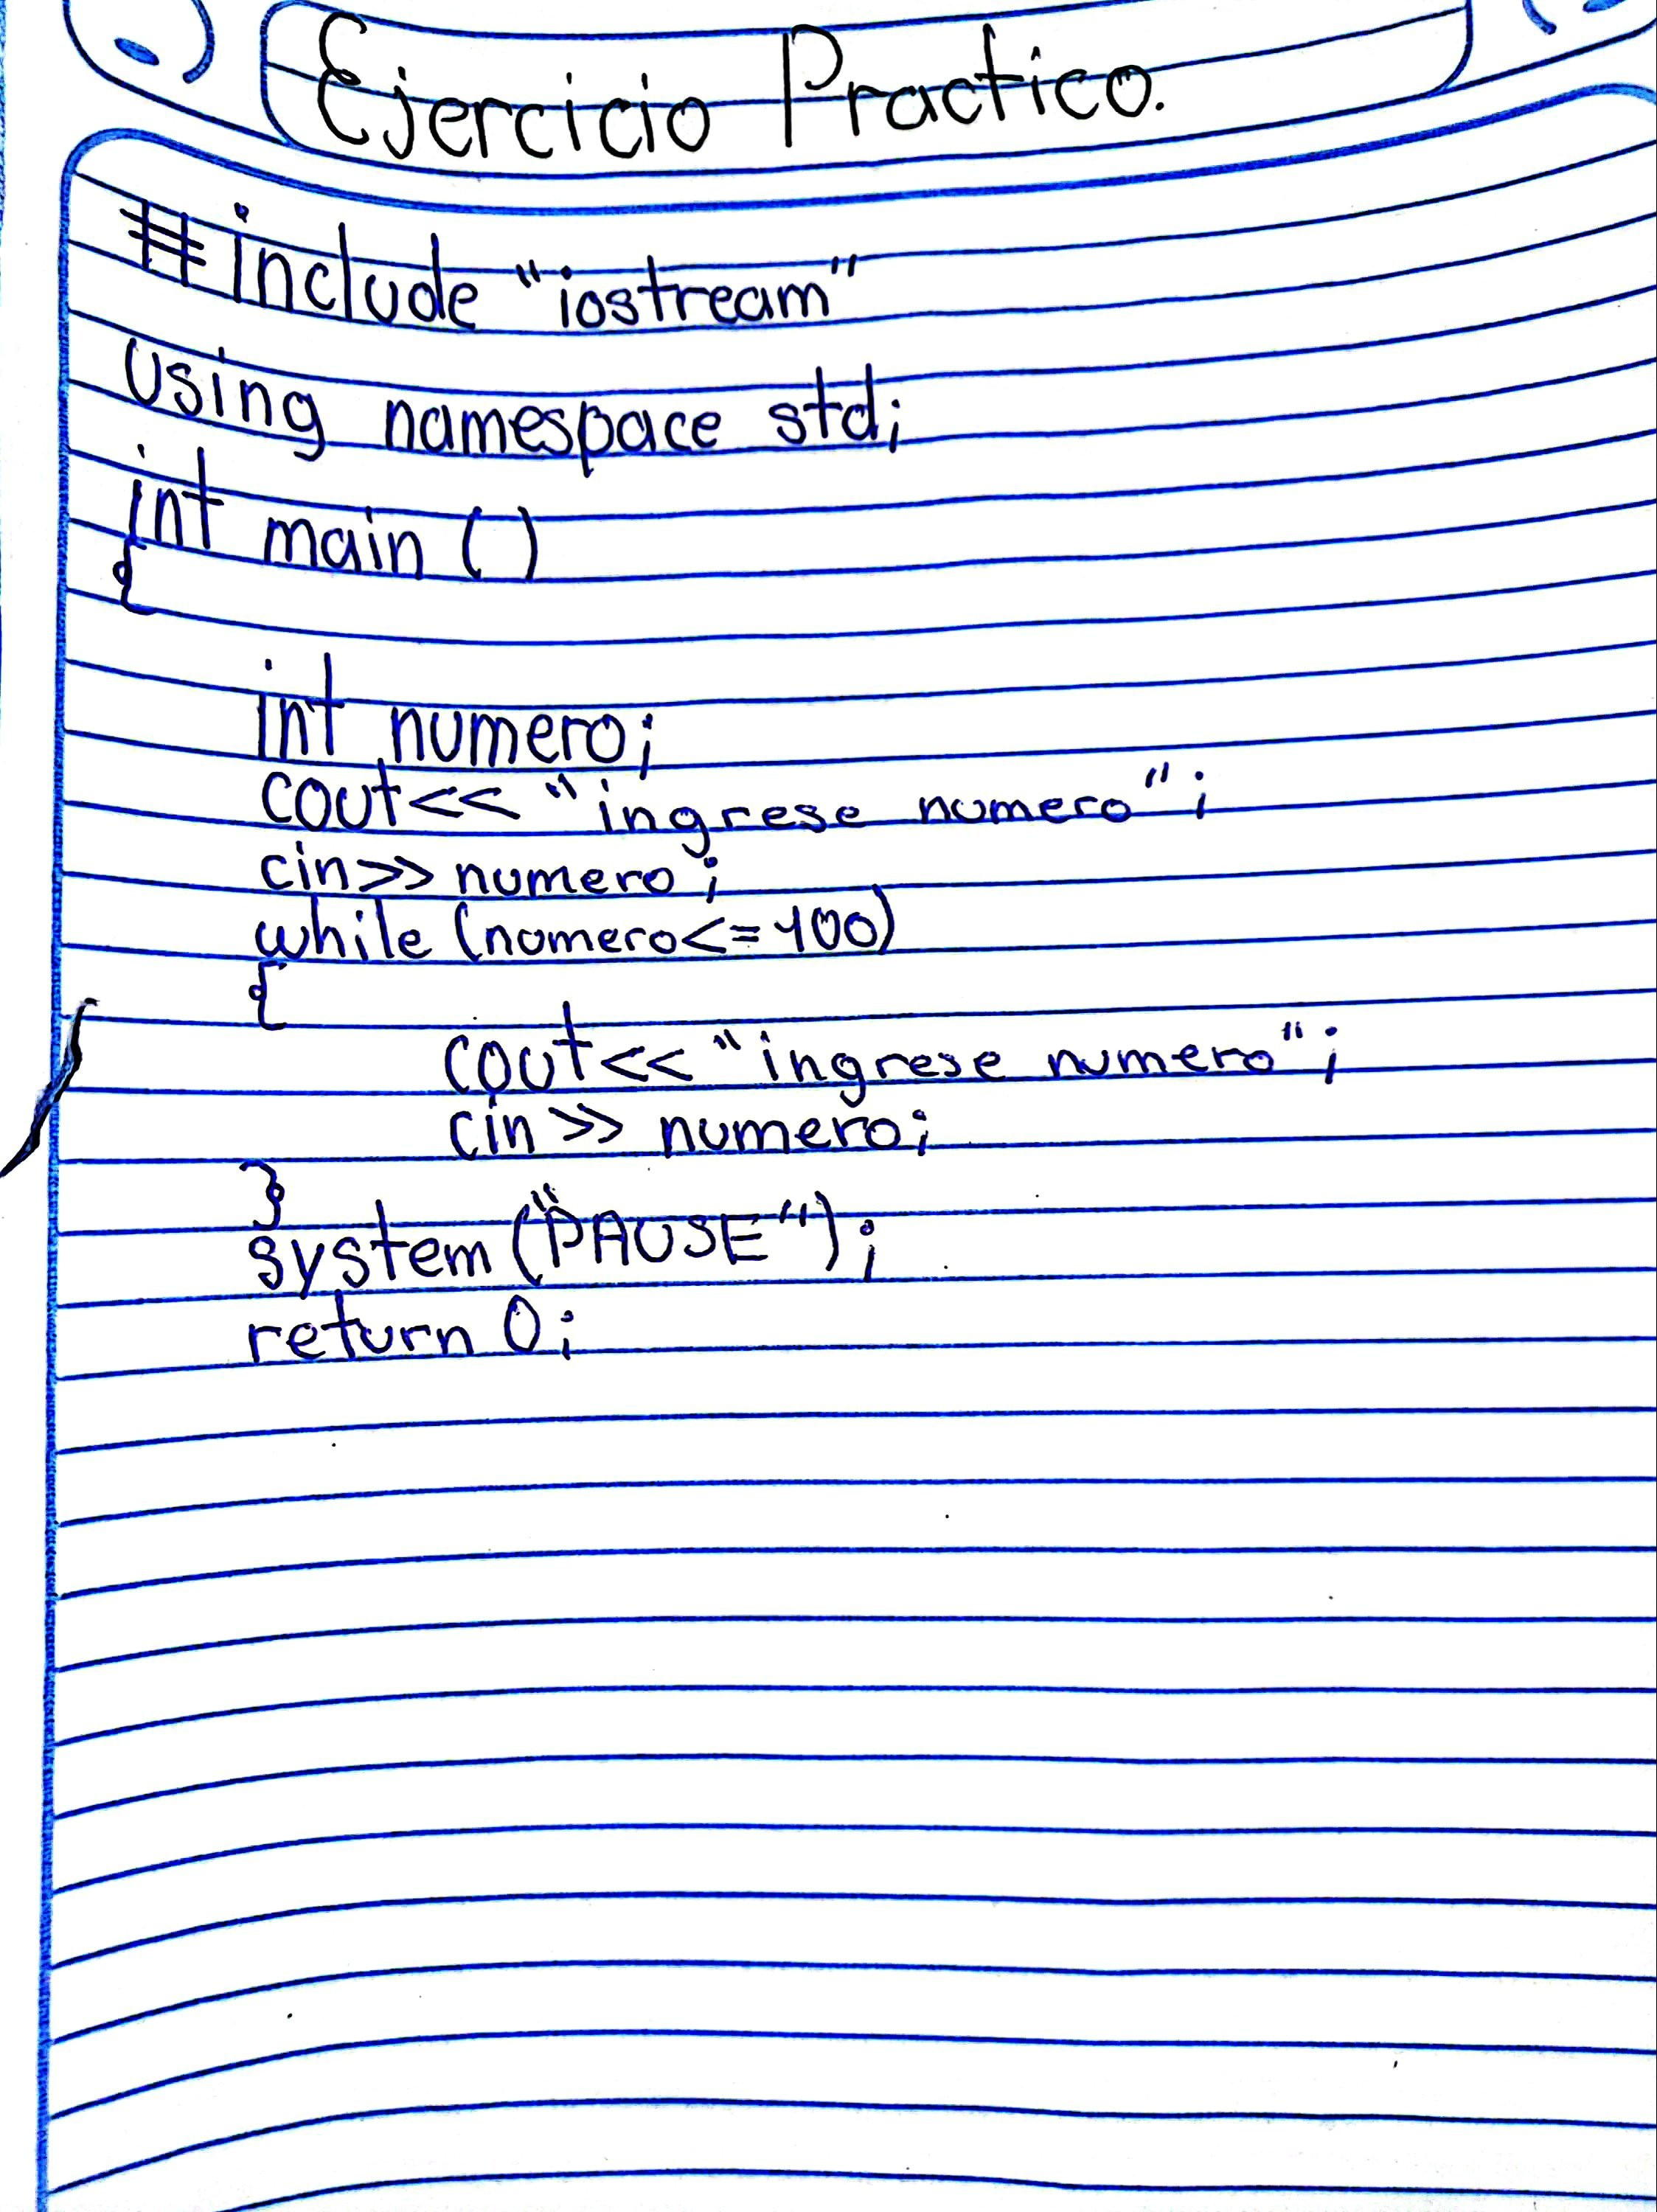 Ejercicio Practico.
#include "iostream"
using namespace std;
int main ()
{
int numero;
cout<< "ingrese numero";
cin>> numero;
while (numero<=100)
{
cout<< "ingrese numero";
cin>> numero;
}
system("PAUSE");
return 0;